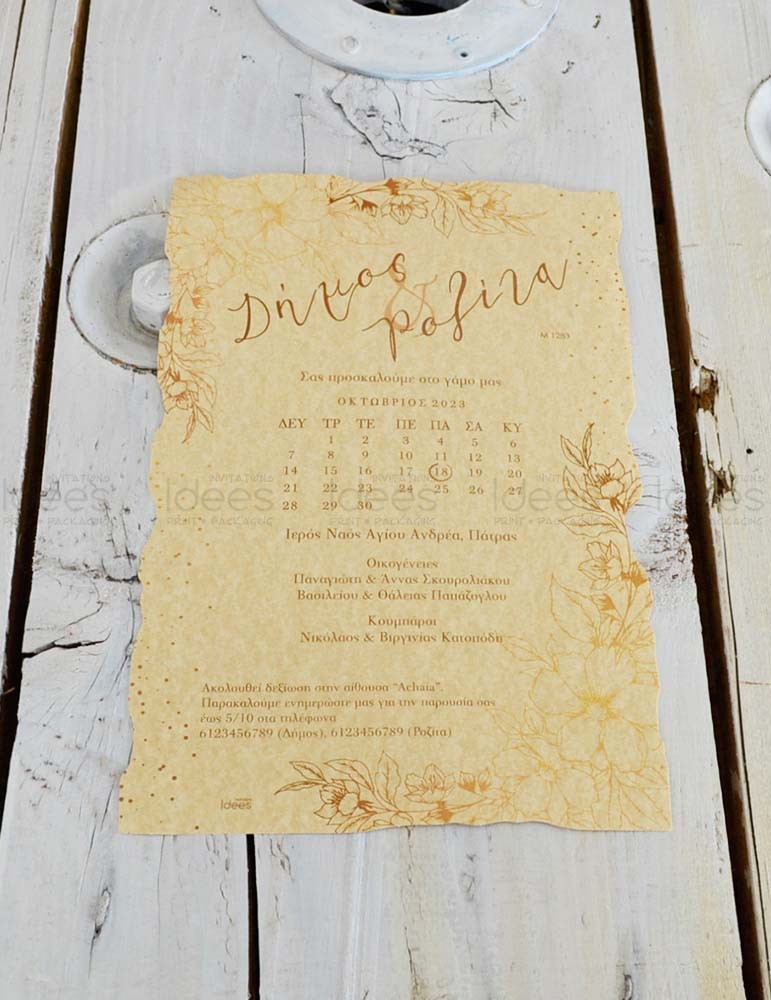 Δήμος
&
Ροζίτα
M 1283
Σας προσκαλούμε στο γάμο μας
ΟΚΤΩΒΡΙΟΣ 2023
ΔΕΥ ΤΡ ΤΕ ΠΕ ΠΑ ΣΑ ΚΥ
1 2 3 4 5 6
7 8 9 10 11 12 13
14 15 16 17 18 19 20
21 22 23 24 25 26 27
28 29 30
INVITATIONS INVITATIONS INVITATIONS
Idees Idees Idees Idees
PRINT + PACKAGING PRINT + PACKAGING PRINT + PACKAGING
Ιερός Ναός Αγίου Ανδρέα, Πάτρας
Οικογένειες
Παναγιώτη & Άννας Σκουρολιάκου
Βασιλείου & Θάλειας Παπάζογλου
Κουμπάροι
Νικόλαος & Βιργινίας Κατοπόδη
Ακολουθεί δεξίωση στην αίθουσα "Achaia".
Παρακαλούμε ενημερώστε μας για την παρουσία σας
έως 5/10 στα τηλέφωνα
6123456789 (Δήμος), 6123456789 (Ροζίτα)
Idees